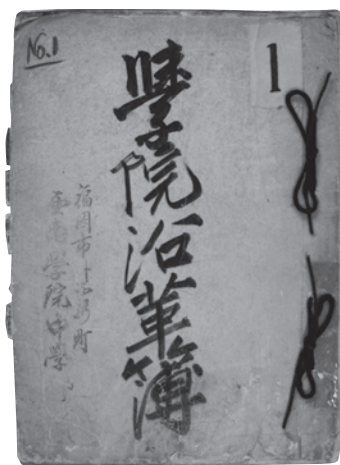 No.1
1
學院沿革簿
福岡市 西新町
西南学院中学